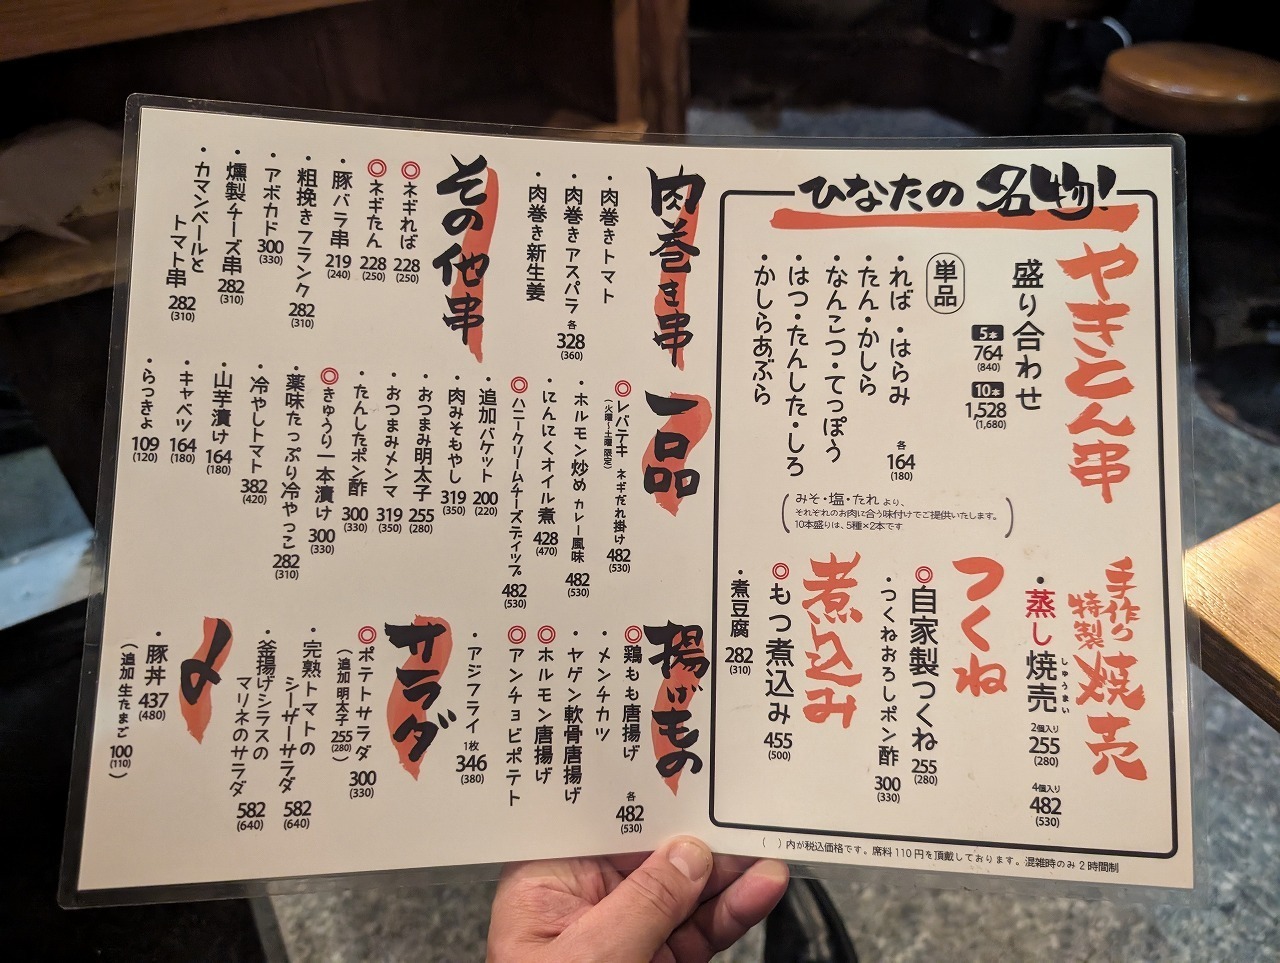 ひなたの名物!
やきとん串
盛り合わせ
5本
764
(840)
10本
1,528
(1,680)
単品
・れば・はらみ
・たん・かしら
・なんこつ・てっぽう
・はつ・たんした・しろ
・かしらあぶら
各
164
(180)
みそ・塩・たれより、
それぞれのお肉に合う味付けでご提供いたします。
10本盛りは、5種×2本です
手作り
特製
焼売
・蒸し焼売
しゅうまい
2個入り
255
(280)
4個入り
482
(530)
つくね
◎自家製つくね
255
(280)
・つくねおろしポン酢
300
(330)
煮込み
◎もつ煮込み
455
(500)
・煮豆腐
282
(310)
( )内が税込価格です。席料110円を頂戴しております。混雑時のみ2時間制
肉巻き串
・肉巻きトマト
・肉巻きアスパラ
・肉巻き新生姜
各
328
(360)
その他串
◎ネギれば
228
(250)
◎ネギたん
228
(250)
・豚バラ串
219
(240)
・粗挽きフランク
282
(310)
・アボカド
300
(330)
・燻製チーズ串
282
(310)
・カマンベールと
トマト串
282
(310)
一品
◎レバテキ ネギだれ掛け
(火曜〜土曜限定)
482
(530)
・ホルモン炒め カレー風味
482
(530)
・にんにくオイル煮
428
(470)
◎ハニークリームチーズディップ
482
(530)
・追加バケット
200
(220)
・肉みそもやし
319
(350)
・おつまみ明太子
255
(280)
・おつまみメンマ
319
(350)
・たんしたポン酢
300
(330)
◎きゅうり一本漬け
300
(330)
・薬味たっぷり冷やっこ
282
(310)
・冷やしトマト
382
(420)
・山芋漬け
164
(180)
・キャベツ
164
(180)
・らっきょ
109
(120)
揚げもの
◎鶏もも唐揚げ
・メンチカツ
・ヤゲン軟骨唐揚げ
◎ホルモン唐揚げ
◎アンチョビポテト
各
482
(530)
・アジフライ
1枚
346
(380)
サラダ
◎ポテトサラダ
300
(330)
(追加 明太子 255
(280)
)
・完熟トマトの
シーザーサラダ
582
(640)
・釜揚げシラスの
マリネのサラダ
582
(640)
〆
・豚丼
437
(480)
(追加 生たまご 100
(110)
)